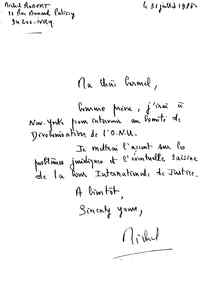 Michel ROBERT
94200 - IVRY.
le 31 juillet 1985
Comme prévu, j'irai à
New-York pour intervenir au Comité de
Décolonisation de l'O.N.U.
Je mettrai l'accent sur les
problèmes juridiques et l'éventuelle saisine
de la Cour Internationale de Justice.
A bientôt,
Sincerely yours,
Michel